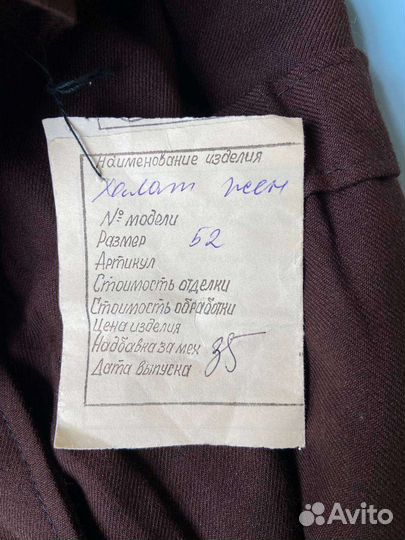 Наименование изделия
Халат жен
№ модели
Размер 52
Артикул
Стоимость отделки
Стоимость обработки
Цена изделия
Надбавка за мех 35
Дата выпуска
Avito